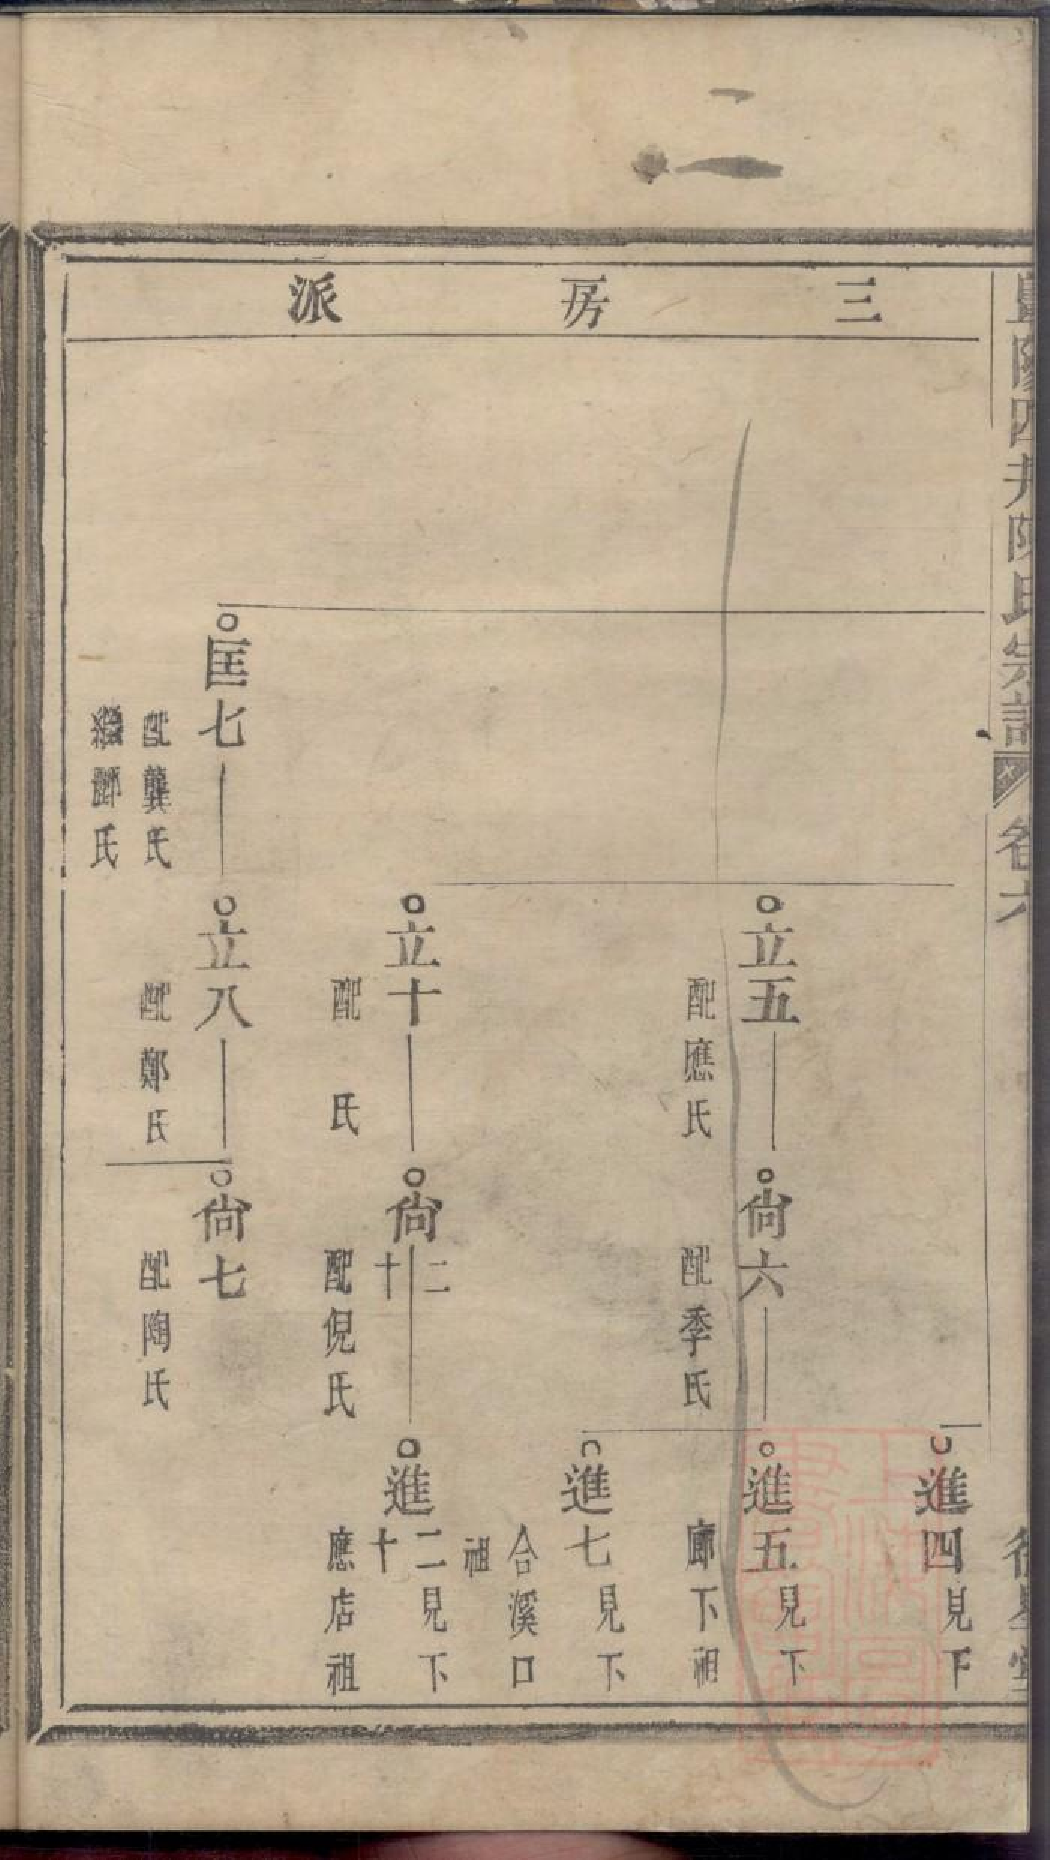 暨陽四井陳氏宗譜
卷六
三房派
進四 見下
立五
配應氏
尙六
配季氏
進五 見下
廊下祖
進七 見下
合溪口
祖
立十
配 氏
尙二十
配倪氏
進二十 見下
應店祖
匡七
配龔氏
繼酈氏
立八
配鄭氏
尙七
配陶氏